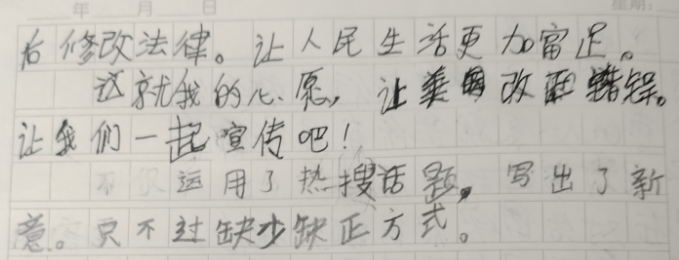 年 月 日 星期:
后修改法律。让人民生活更加富足。
这就我的心愿，让美国改正错误。
让我们一起宣传吧！
不仅运用了热搜话题，写出了新
意。只不过缺少缺正方式。